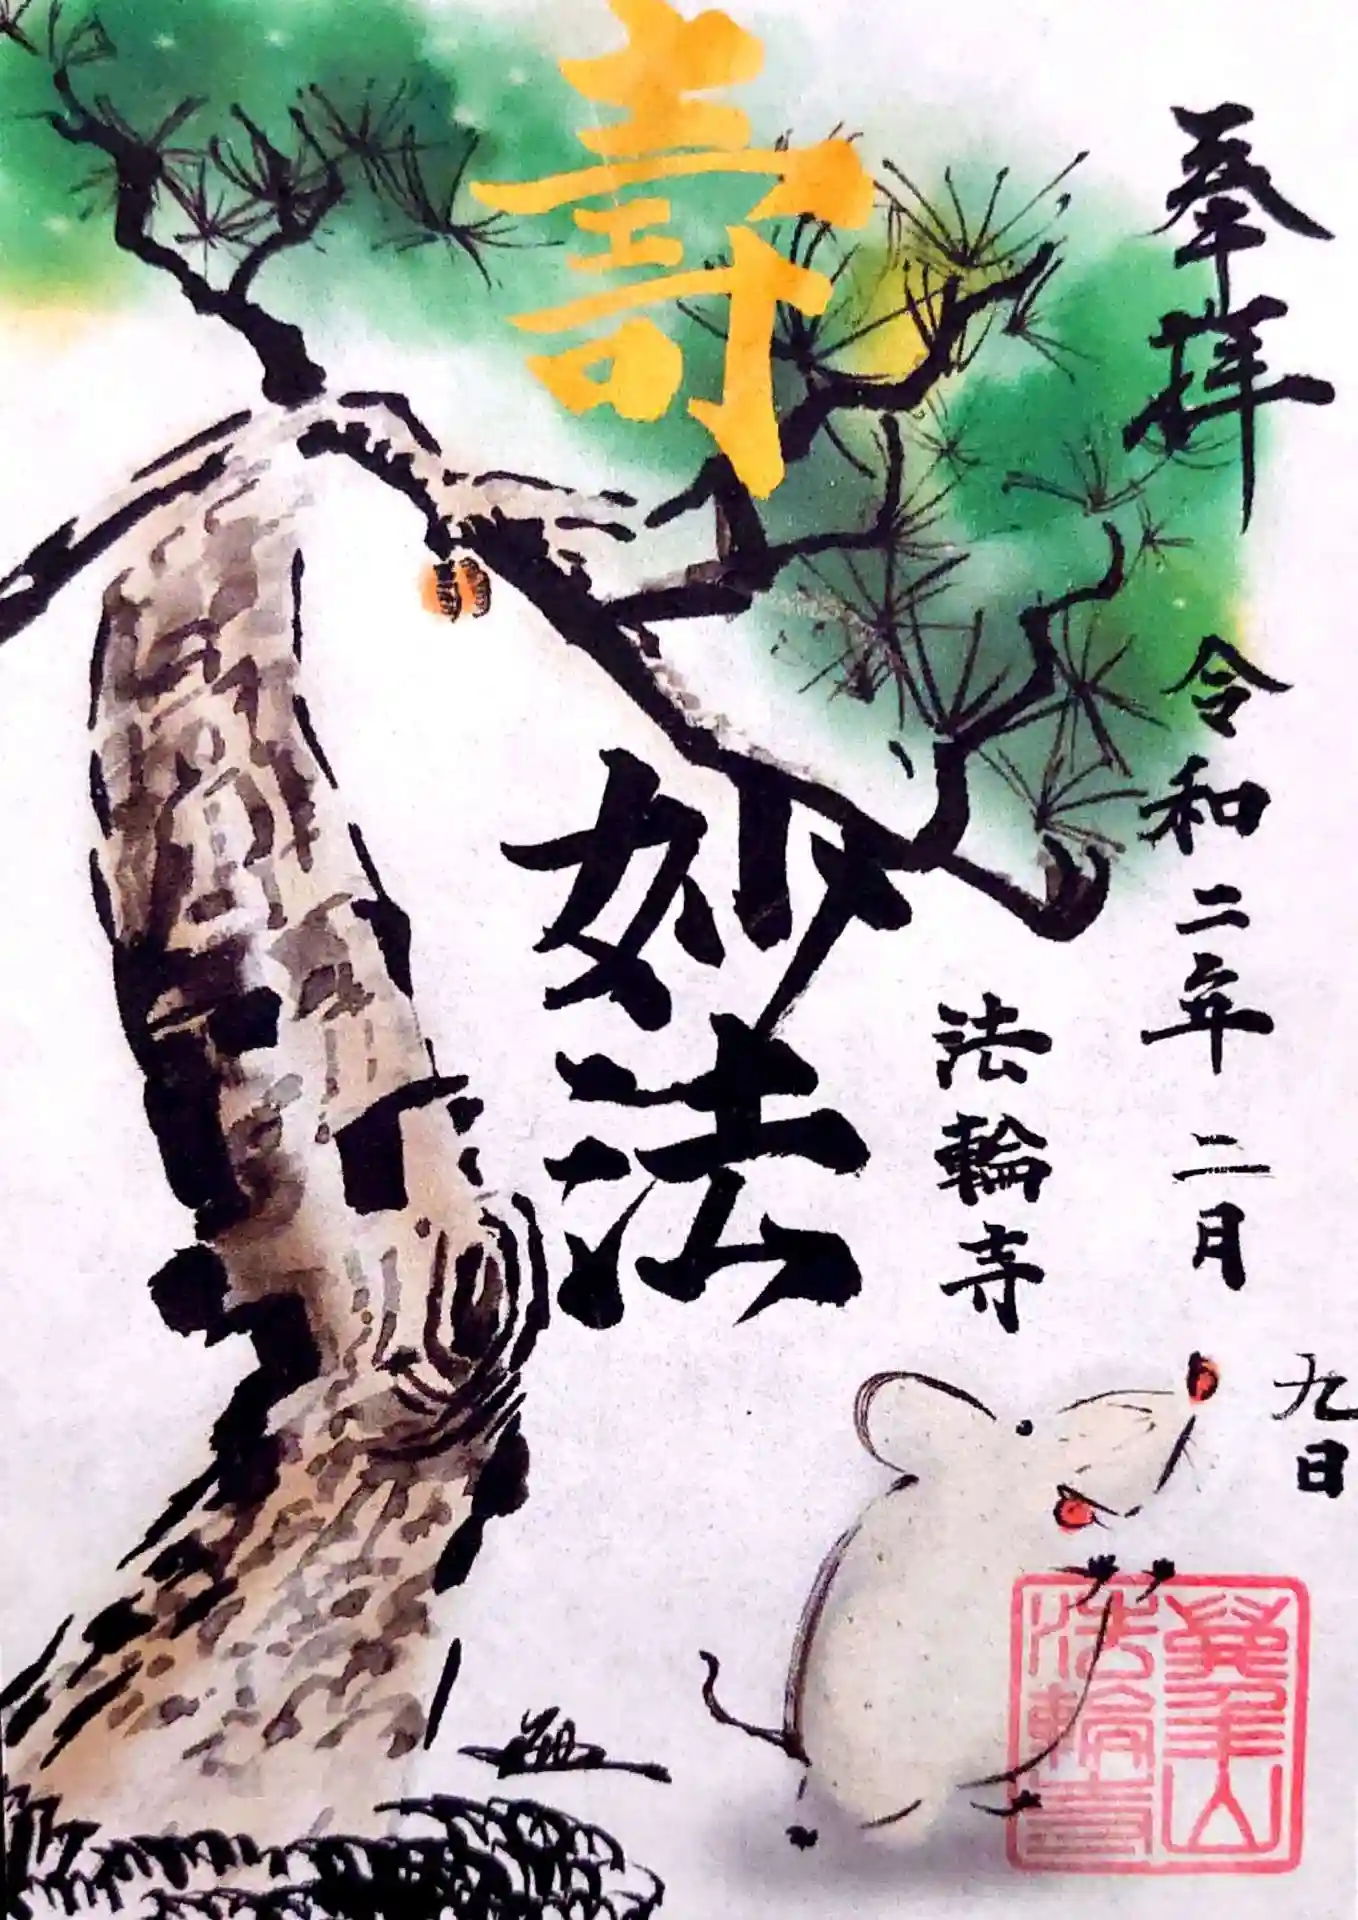 奉拝
令和二年二月
九日
壽
妙法
法輪寺
法輪寺